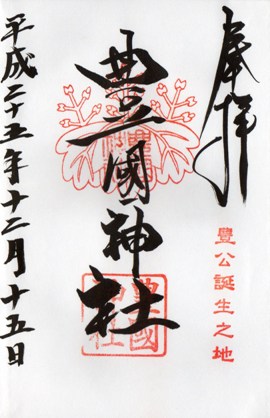 奉拝
豊公誕生之地
豊國神社
豊國神社
平成二十五年十二月十五日